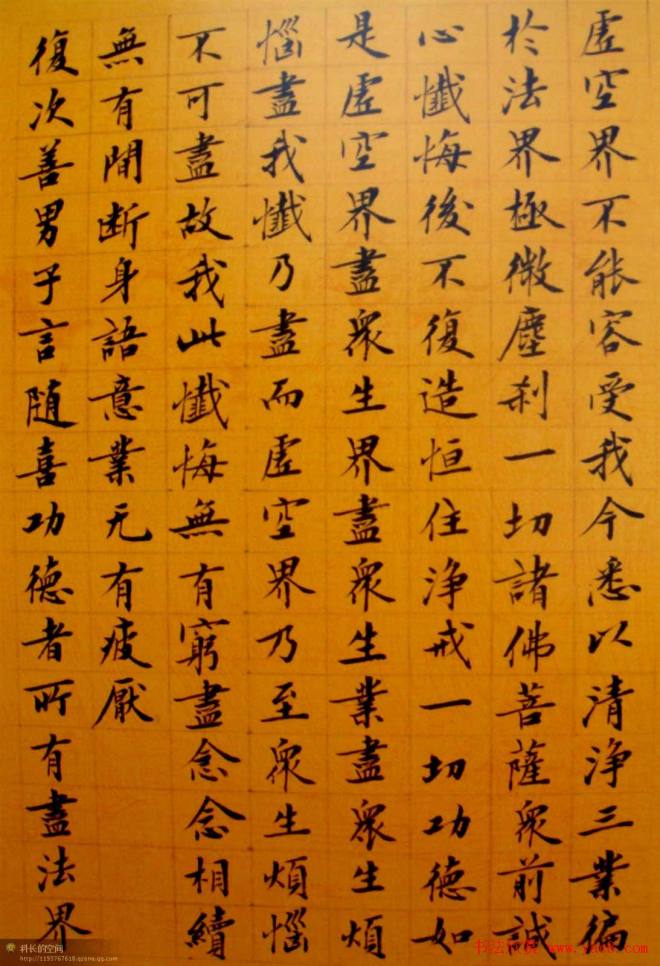 虛空界不能容受我今悉以清淨三業徧
於法界極微塵刹一切諸佛菩薩衆前誠
心懺悔後不復造恒住淨戒一切功德如
是虛空界盡衆生界盡衆生業盡衆生煩
惱盡我懺乃盡而虛空界乃至衆生煩惱
不可盡故我此懺悔無有窮盡念念相續
無有間断身語意業无有疲厭
復次善男子言随喜功德者所有盡法界
科长的空间
http://1193767618.qzone.qq.com